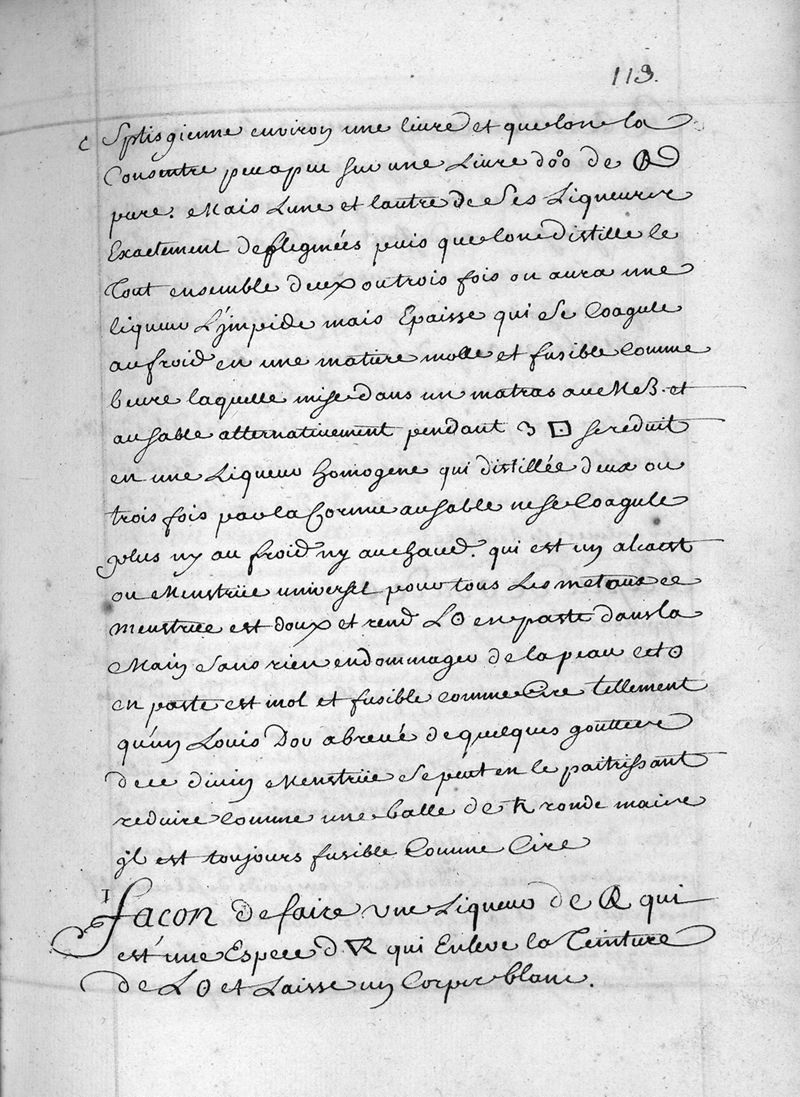 113.
Sptisgienne environ une livre et que lon la
Consentre peu apeu sur une Livre do°o de
pure. Mais Lune et lautre de ses Liqueurs
Exactement deflegmées puis que lon distille le
Tout ensemble deux ou trois fois on aura une
liqueur Lÿmpide mais Epaisse qui se Coagule
au froid en une matiere molle et fusible Comme
beure laquelle mise dans un matras au MB. et
au sable alternativement pendant 3 ⊡ se reduit
en une Liqueur homogene qui distillée deux ou
trois fois par la Cornue au sable ne se Coagule
plus ny au froid ny au chaud. qui est un alcaest
ou Menstrüe universel pour tous Les metaux ce
menstrüe est doux et rend L☉ en paste dans la
Main Sans rien endommager de la peau cet ☉
en paste est mol et fusible comme Cire tellement
qu'un Louis Dor abreué de quelques gouttes
de ce divin Menstrüe se peut en le paitrissant
reduire comme une balle de ronde mais
yl est toujours fusible Comme Cire
1
facon de faire une Liqueur de qui
est une Espece d qui Enleve la Teinture
de L☉ et Laisse un Corps blanc.